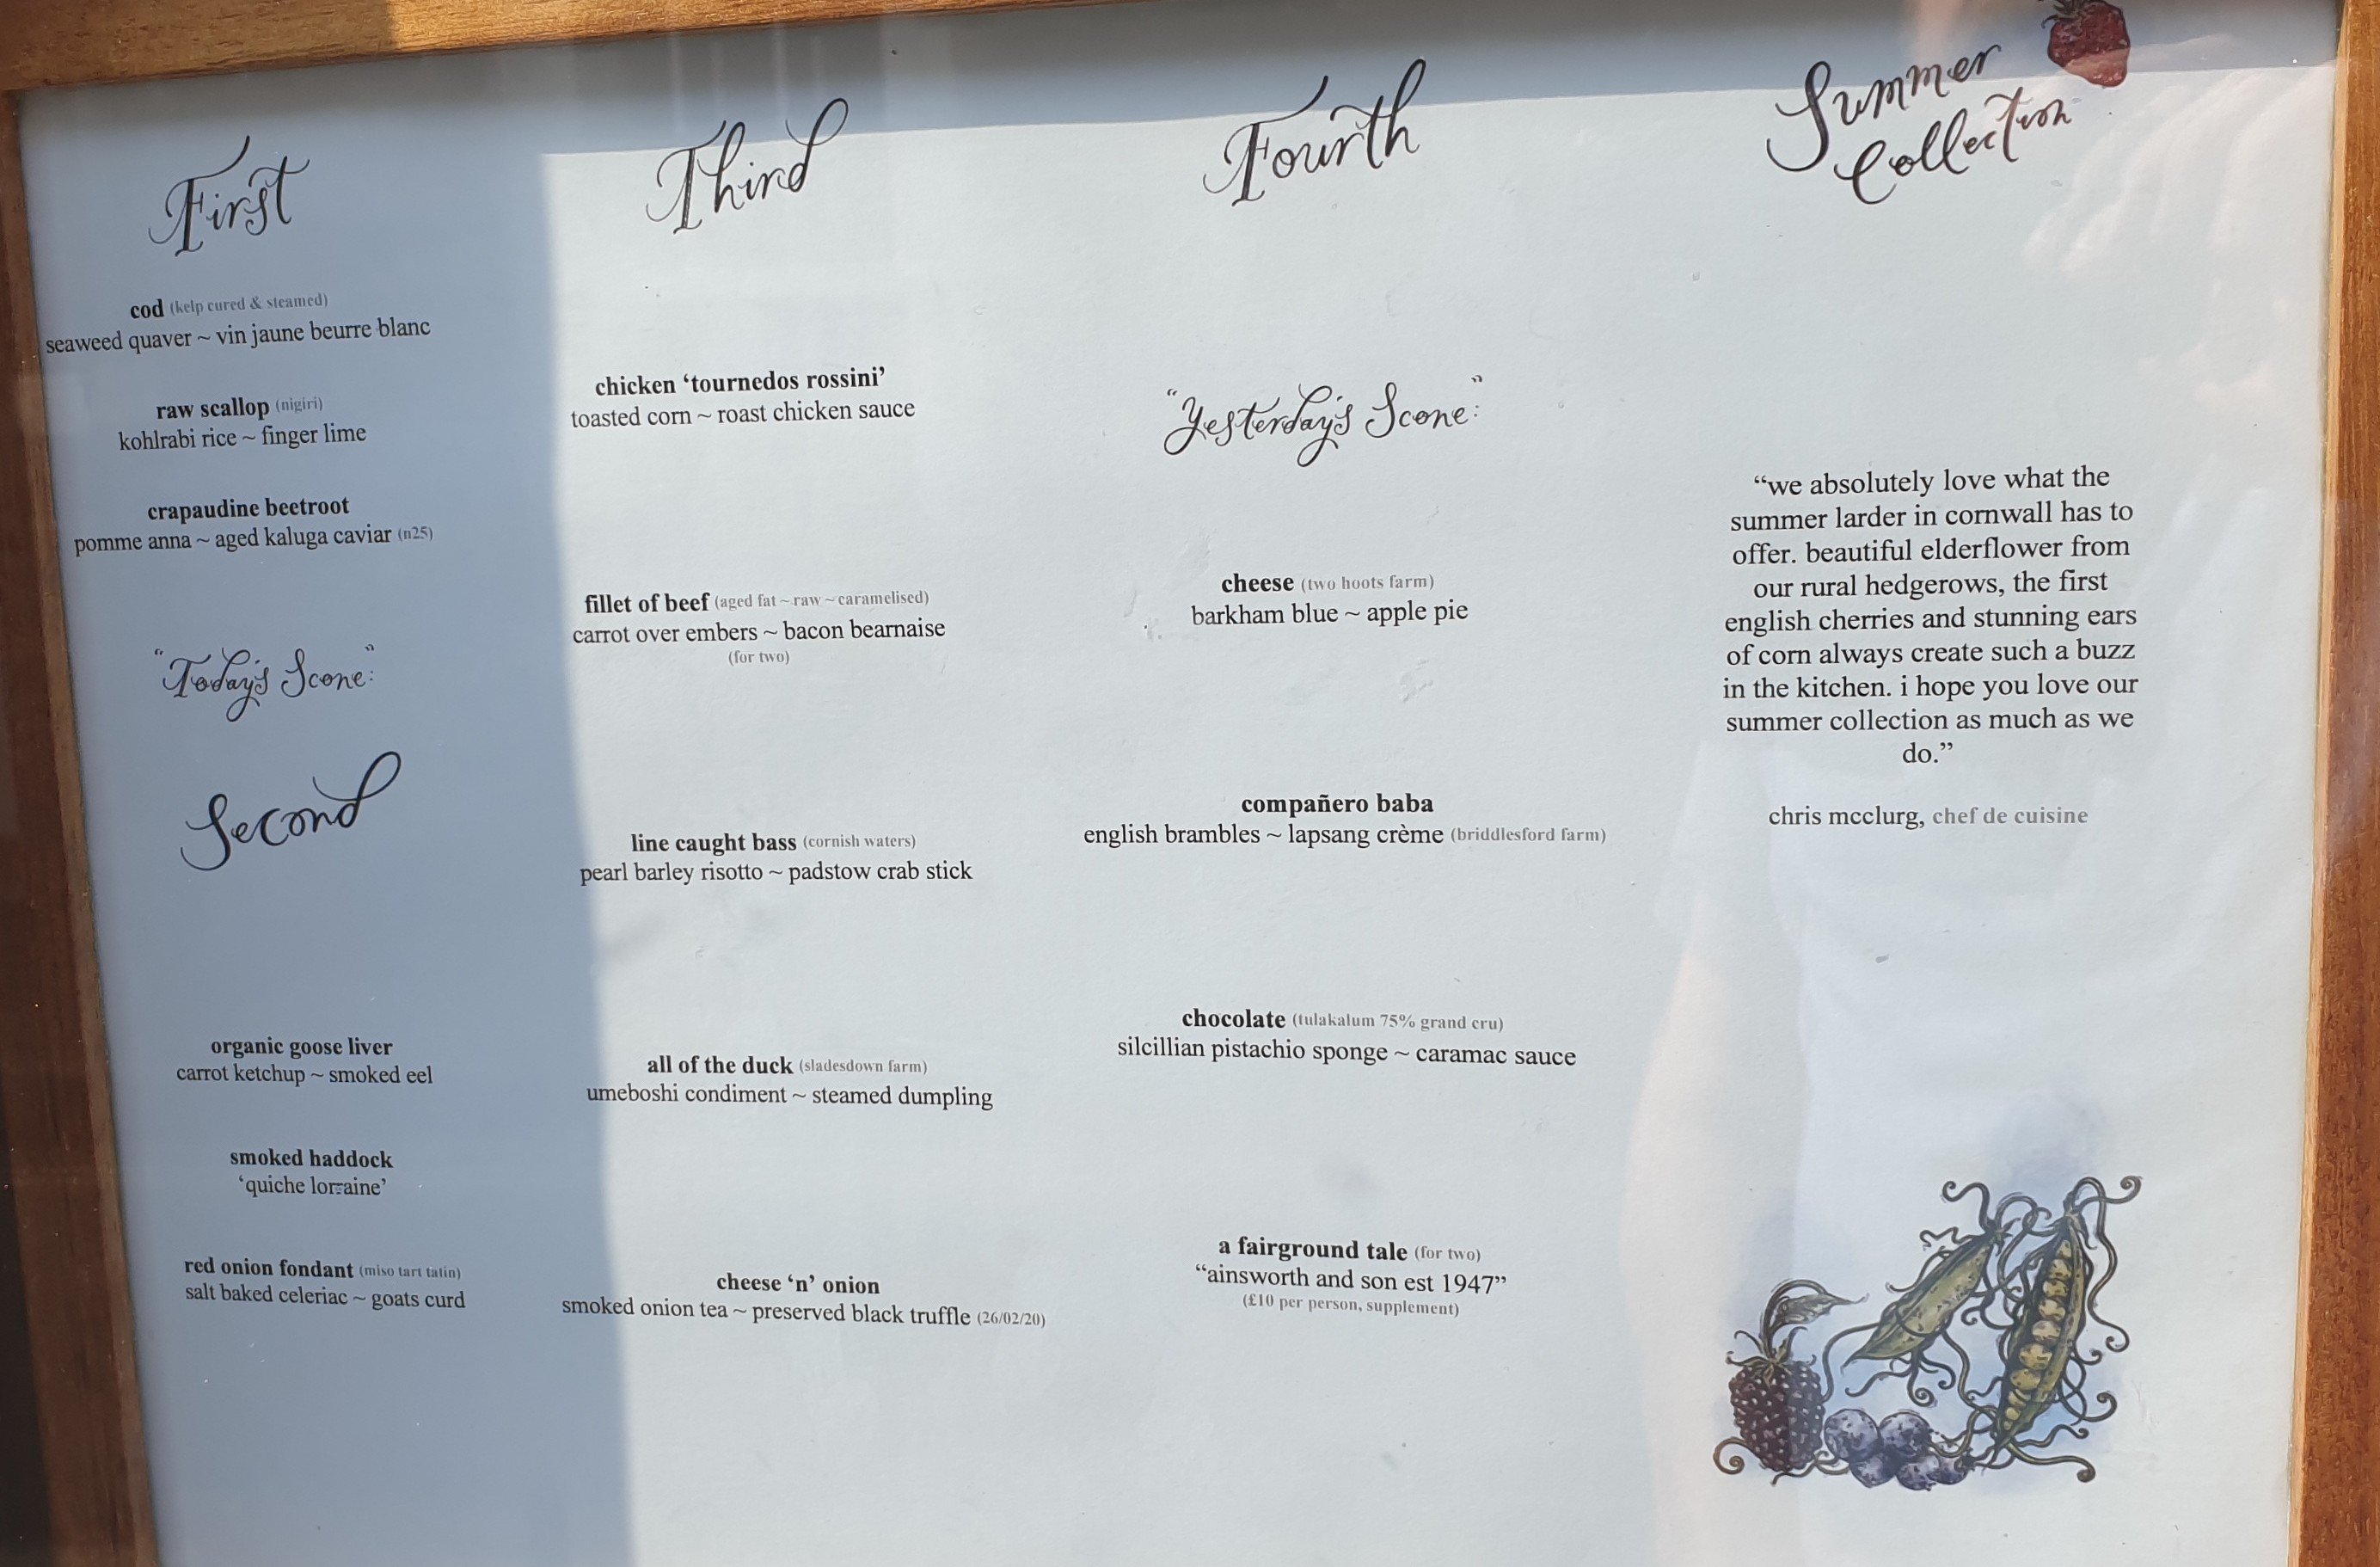 First
cod (kelp cured & steamed)
seaweed quaver ~ vin jaune beurre blanc
raw scallop (nigiri)
kohlrabi rice ~ finger lime
crapaudine beetroot
pomme anna ~ aged kaluga caviar (n25)
"Today's Scone:"
Second
organic goose liver
carrot ketchup ~ smoked eel
smoked haddock
‘quiche lorraine’
red onion fondant (miso tart tatin)
salt baked celeriac ~ goats curd
Third
chicken ‘tournedos rossini’
toasted corn ~ roast chicken sauce
fillet of beef (aged fat ~ raw ~ caramelised)
carrot over embers ~ bacon bearnaise
(for two)
line caught bass (cornish waters)
pearl barley risotto ~ padstow crab stick
all of the duck (sladesdown farm)
umeboshi condiment ~ steamed dumpling
cheese ‘n’ onion
smoked onion tea ~ preserved black truffle (26/02/20)
Fourth
"Yesterday's Scone:"
cheese (two hoots farm)
barkham blue ~ apple pie
compañero baba
english brambles ~ lapsang crème (briddlesford farm)
chocolate (tulakalum 75% grand cru)
silcillian pistachio sponge ~ caramac sauce
a fairground tale (for two)
“ainsworth and son est 1947”
(£10 per person, supplement)
Summer
Collection
“we absolutely love what the
summer larder in cornwall has to
offer. beautiful elderflower from
our rural hedgerows, the first
english cherries and stunning ears
of corn always create such a buzz
in the kitchen. i hope you love our
summer collection as much as we
do.”
chris mcclurg, chef de cuisine